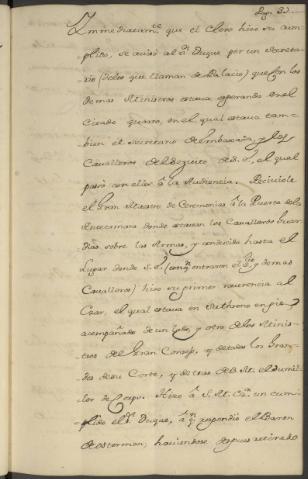 Immediatam.te que el Clero hizo su cum-
plido, se avisó al S.r Duque por un Secreta-
rio (delos que llaman de Palacio) que con los
demas Ministros estava esperando en el
Citado quarto, en el qual estava tam-
bien el Secretario de Embaxada, y los
Cavalleros del sequito de S. E., el qual
pasó con ellos à la Audiencia. Reciviole
el Gran Maestro de Ceremonias à la Puerta dela
Antecamara donde estavan los Cavalleros Guar-
dias sobre las Armas, y conducido hasta el
Lugar donde S. E. (con q.n entraron el y demas
Cavalleros) hizo su primera reverencia al
Czar, el qual estava en su throno en pie,
acompañado de un y otro de los Minis-
tros del Gran Consejo, y detodos los Gran-
des de su Corte, y detras de S. M. el Sumil-
ler de Corps. Hizo à S. M. Cz.a un cum-
plido el S.r Duque, à q.n respondió el Baron
de Osterman, haviendose despues retirado